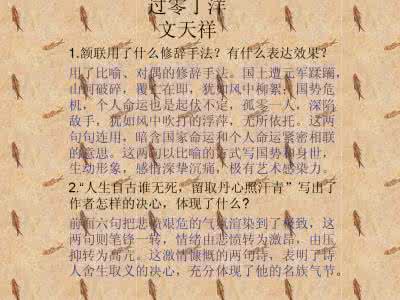 过零丁洋
文天祥
1.颔联用了什么修辞手法？有什么表达效果？
用了比喻、对偶的修辞手法。国土遭元军蹂躏，
山河破碎，覆亡在即，犹如风中柳絮；国势危
机，个人命运也是起伏不定，孤零一人，深陷
敌手，犹如风中吹打的浮萍，无所依托。这两
句句连用，暗含国家命运和个人命运紧密相联
的意思。这两句以比喻的方式写国势和身世，
生动形象，感情深挚沉痛，极有艺术感染力。
2.“人生自古谁无死，留取丹心照汗青”写出了
作者怎样的决心，体现了什么？
前面六句把悲愤艰危的气氛渲染到了极致，这
两句则笔锋一转，情绪由悲愤转为激昂，由压
抑转为高亢。这激情慷慨的两句诗，表明了诗
人舍生取义的决心，充分体现了他的名族气节。